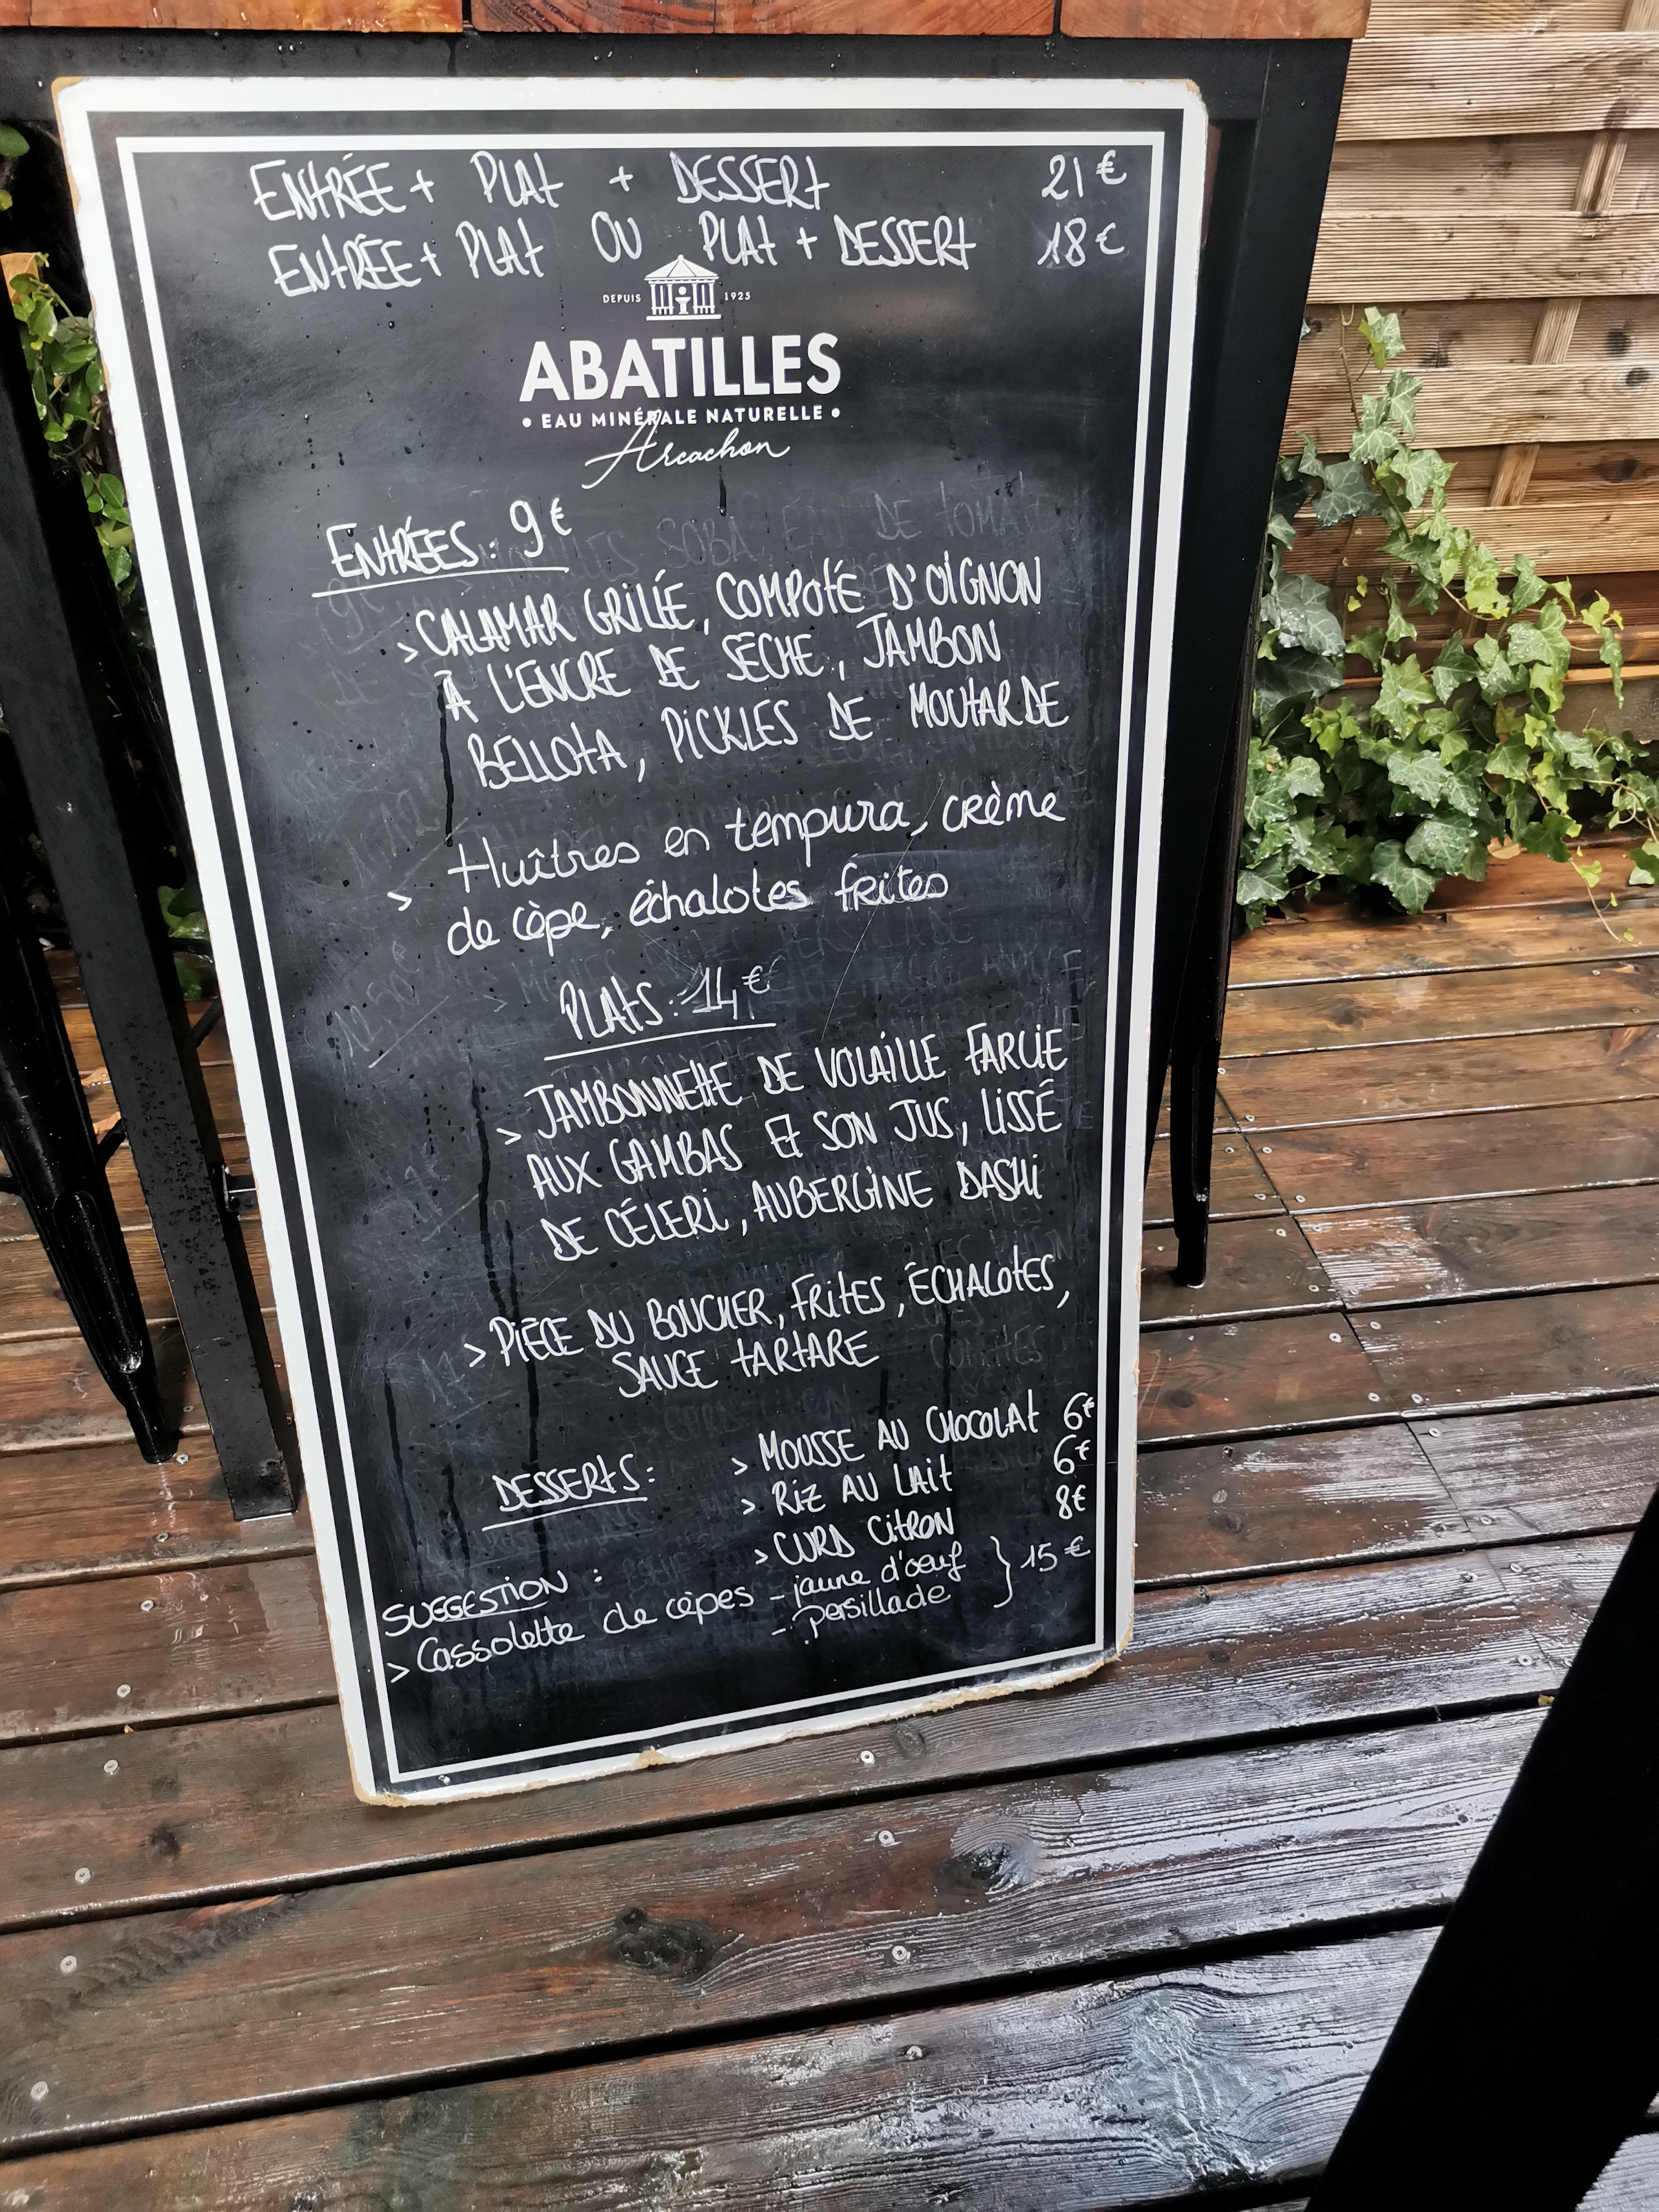 ENTRÉE + PLAT + DESSERT 21 €
ENTRÉE + PLAT OU PLAT + DESSERT 18 €
DEPUIS 1925
ABATILLES
• EAU MINÉRALE NATURELLE •
Arcachon
ENTRÉES : 9 €
> CALAMAR GRILLÉ, COMPOTÉ D'OIGNON
À L'ENCRE DE SECHE, JAMBON
BELLOTA, PICKLES DE MOUTARDE
> Huîtres en tempura, crème
de cèpe, échalotes frites
PLATS : 14 €
> JAMBONNETTE DE VOLAILLE FARCIE
AUX GAMBAS ET SON JUS, LISSÉ
DE CÉLERI, AUBERGINE DASHI
> PIÈCE DU BOUCHER, FRITES, ÉCHALOTES,
SAUCE TARTARE
DESSERTS : > MOUSSE AU CHOCOLAT 6€
> RIZ AU LAIT 6€
> CURD CITRON 8€
SUGGESTION :
> Cassolette de cèpes - jaune d'œuf } 15 €
- persillade